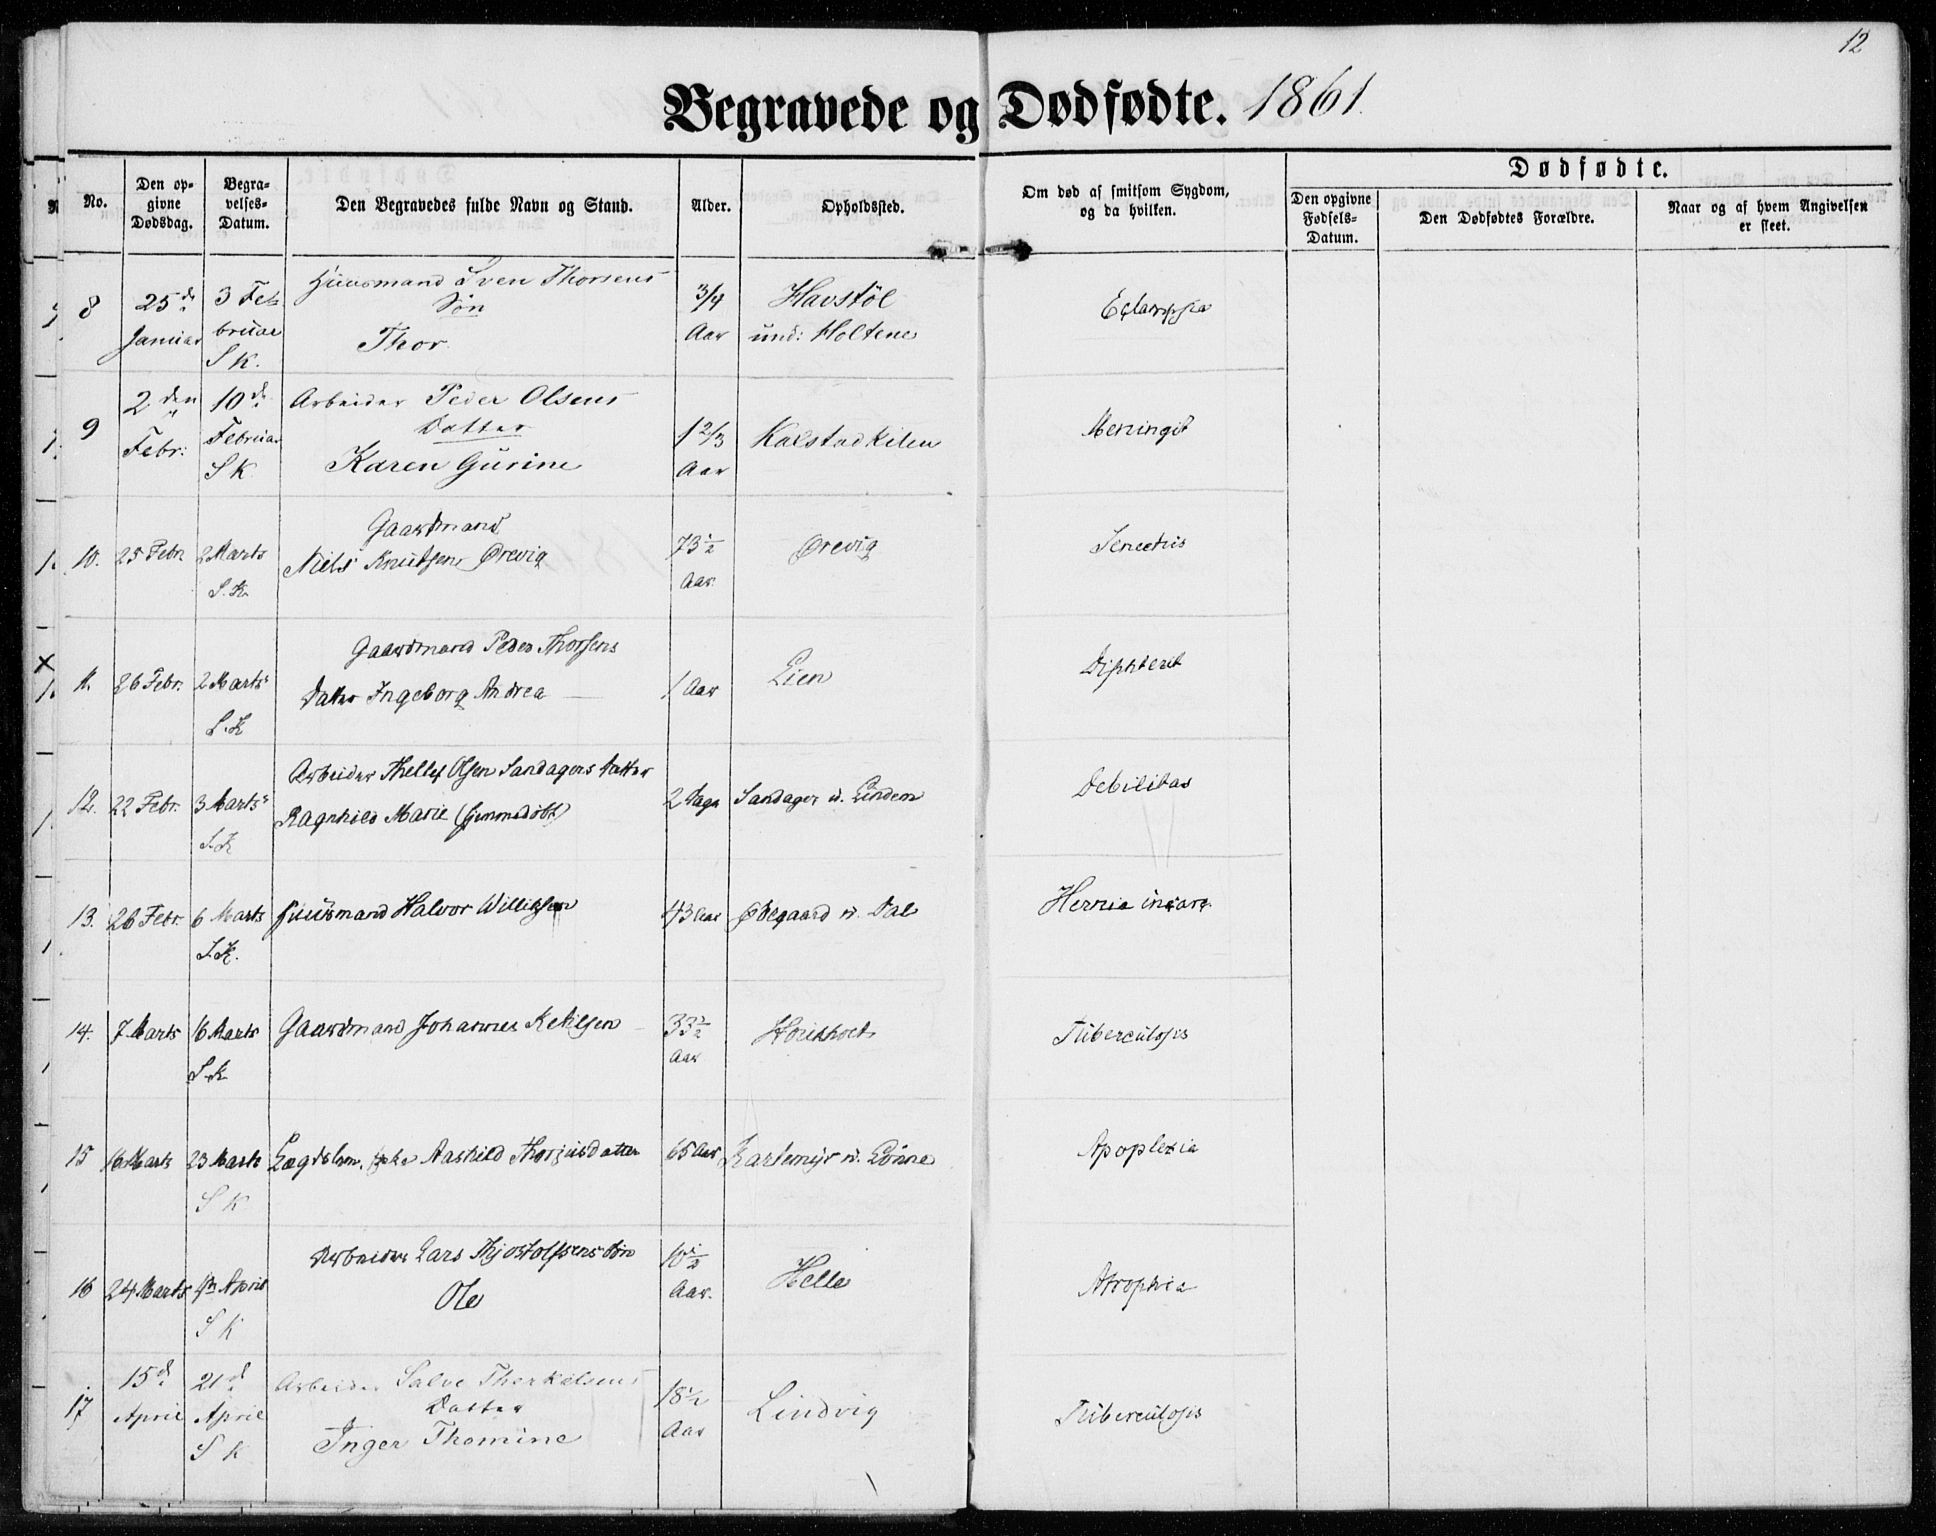 12
Begravede og Dødfødte. 1861.
No.
Den op-
givne
Dødsdag.
Begra-
velses-
Datum.
Den Begravedes fulde Navn og Stand.
Alder.
Opholdssted.
Om død af smitsom Sygdom,
og da hvilken.
Dødfødte.
Den opgivne
Fødsels-
Datum.
Den Dødfødtes Forældre.
Naar og af hvem Angivelsen
er skeet.
8
25de
Januar
3 Fe-
bruar
S K.
Huusmand Sven Thorsens
Søn
Thor
3/4
Aar
Havstøl
und: Holtene
Eclampsia
9
2den
Febr:
10de
Februar
S K
Arbeider Peder Olsens
Datter
Karen Gurine
1 2/3
Aar
Kalstadkilen
Meningit
10.
25 Febr
2 Marts
S. K.
Gaardmand
Niels Knudsen Ørevig
73 1/2
Aar
Ørevig
Senectus
11.
26 Febr.
2 Marts
S. K
Gaardmand Peder Thorsens
Datter Ingeborg Andrea
1 Aar
Lien
Diphterit
12.
22 Febr.
3 Marts
S. K
Arbeider Thellef Olsen Sandagers Datter
Ragnhild Marie (hjemmedøbt)
2 Dage
Sandager u. Linden
Debilitas
13.
26 Febr.
6 Marts
S. K.
Huusmand Halvor Willigsen
43 Aar
Ødegaard u. Dal
Hernia incarc.
14.
7 Marts
16 Marts
S. K
Gaardmand Johannes Ketilsen
33 1/2
Aar
Houkholt
Tuberculosis
15
16 Marts
23 Marts
S K
Lægdslem, Aashild Thorjusdatter
65 Aar
u. Lønne
Apoplexia
16
24 Marts
April
S K
Arbeider Lars Thjostolfsens Søn
Ole
10 1/2
Aar.
Helle
Atrophia
17
15d
April
21d
April
S K
Arbeider Salve Therkelsens
Datter
Inger Thomine
18 1/2
Aar
Lindvig
Tuberculosis